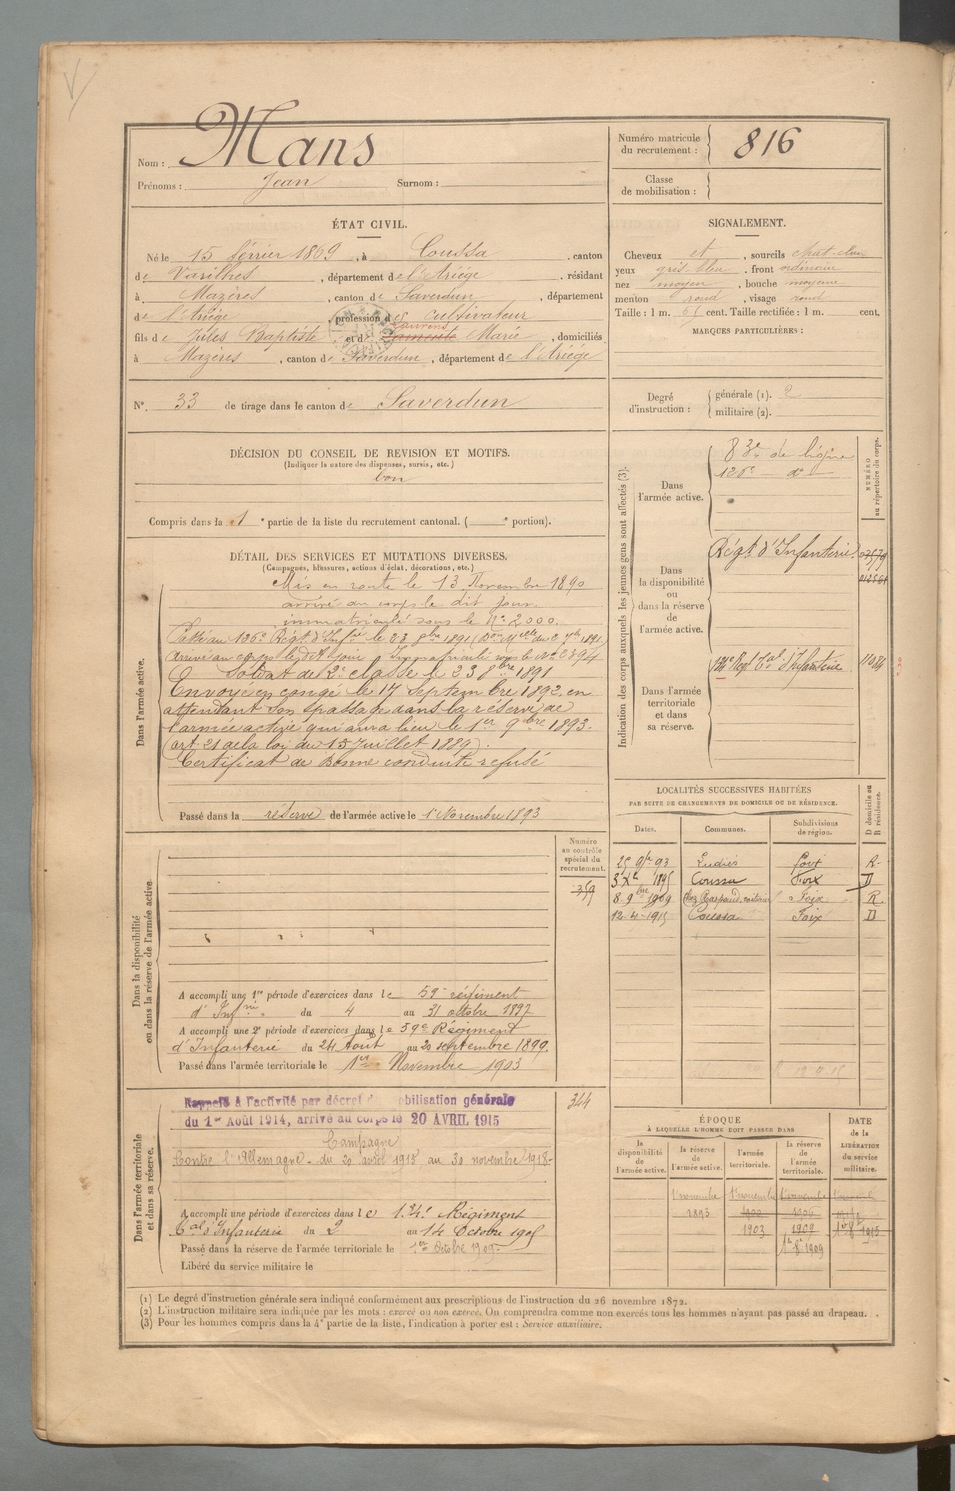 Nom : Mans
Prénoms : Jean Surnom :
Numéro matricule du recrutement : 816
Classe de mobilisation :
ÉTAT CIVIL.
Né le 15 février 1869, à Coussa, canton
de Varilhes, département de l'Ariège, résidant
à Mazères, canton de Saverdun, département
de l'Ariège, profession de cultivateur
fils de Jules Baptiste et de Laurens Marie, domiciliés
à Mazères, canton de Saverdun, département de l'Ariège
N° 33 de tirage dans le canton de Saverdun
SIGNALEMENT.
Cheveux et, sourcils chat-clair
yeux gris bleu, front ordinaire
nez moyen, bouche moyenne
menton rond, visage rond
Taille : 1 m. 65 cent. Taille rectifiée : 1 m. cent.
MARQUES PARTICULIÈRES :
Degré d'instruction : générale (1). 2
militaire (2).
DÉCISION DU CONSEIL DE REVISION ET MOTIFS.
(Indiquer la nature des dispenses, sursis, etc.)
bon
Compris dans la 1e partie de la liste du recrutement cantonal. ( e portion).
DÉTAIL DES SERVICES ET MUTATIONS DIVERSES.
(Campagnes, blessures, actions d'éclat, décorations, etc.)
Dans l'armée active.
Mis en route le 13 Novembre 1890
arrivé au corps le dit jour
immatriculé sous le N° 2000.
Passé au 126e Régt d'Infrie le 23 8bre 1891
arrivé au corps le dit jour Immatriculé sous le N° 2394
Soldat de 2e classe le 23 8bre 1891
Envoyé en congé le 17 Septembre 1892, en
attendant son passage dans la réserve de
l'armée active qui aura lieu le 1er 9bre 1893.
(art. 21 de la loi du 15 Juillet 1889).
Certificat de Bonne conduite refusé
Passé dans la réserve de l'armée active le 1er Novembre 1893
Indication des corps auxquels les jeunes gens sont affectés (3).
NUMÉRO au répertoire du corps.
Dans l'armée active.
83e de ligne
126e do
Dans la disponibilité ou dans la réserve de l'armée active.
Régt d'Infanterie
Dans l'armée territoriale et dans sa réserve.
134e Régt tal d'Infanterie 11084
LOCALITÉS SUCCESSIVES HABITÉES
PAR SUITE DE CHANGEMENTS DE DOMICILE OU DE RÉSIDENCE.
Dates. Communes. Subdivisions de région. D domicile ou R résidence.
25 9bre 93 Ludiès Foix R.
3 Xbre 1895 Coussa Foix D
8 9bre 1909 Foix R
12-4-1915 Coussa Foix D
Dans la disponibilité ou dans la réserve de l'armée active
Numéro au contrôle spécial du recrutement.
359
A accompli une 1re période d'exercices dans le 59e régiment
d'Infrie du 4 au 31 octobre 1897
A accompli une 2e période d'exercices dans le 59e Régiment
d'Infanterie du 24 Août au 20 septembre 1899.
Passé dans l'armée territoriale le 1er Novembre 1903
Dans l'armée territoriale et dans sa réserve.
344
Rappelé à l'activité par décret de mobilisation générale
du 1er Août 1914, arrivé au corps le 20 AVRIL 1915
Campagne
Contre l'Allemagne du 20 avril 1915 au 30 novembre 1918
A accompli une période d'exercices dans le 134e Régiment
tal d'Infanterie du 2 au 14 Octobre 1905
Passé dans la réserve de l'armée territoriale le 1er Octobre 1909
Libéré du service militaire le
ÉPOQUE
A LAQUELLE L'HOMME DOIT PASSER DANS
la disponibilité de l'armée active. la réserve de l'armée active. l'armée territoriale. la réserve de l'armée territoriale.
DATE de la LIBÉRATION du service militaire.
1 novembre 1 novembre 1 novembre
1893 1900 1906
1903 1909 1915
1909
(1) Le degré d'instruction générale sera indiqué conformément aux prescriptions de l'instruction du 26 novembre 1872.
(2) L'instruction militaire sera indiquée par les mots : exercé ou non exercé. On comprendra comme non exercés tous les hommes n'ayant pas passé au drapeau.
(3) Pour les hommes compris dans la 4e partie de la liste, l'indication à porter est : Service auxiliaire.